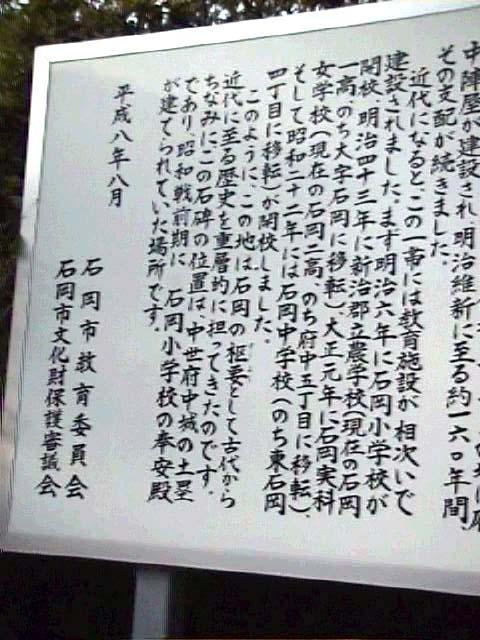 中陣屋が建設され、明治維新に至る約一六〇年間、
その支配が続きました。
近代になると、この一帯には教育施設が相次いで
建設されました。まず明治六年に石岡小学校が
開校、明治四十三年に新治郡立農学校(現在の石岡
一高、のち大字石岡に移転)、大正元年に石岡実科
女学校(現在の石岡二高、のち府中五丁目に移転)、
そして昭和二十二年には石岡中学校(のち東石岡
四丁目に移転)が開校しました。
このように、この地は石岡の枢要として古代から
近代に至る歴史を重層的に担ってきたのです。
ちなみに、この石碑の位置は、中世府中城の土塁
であり、昭和戦前期に石岡小学校の奉安殿
が建てられていた場所です。
平成八年八月
石岡市教育委員会
石岡市文化財保護審議会